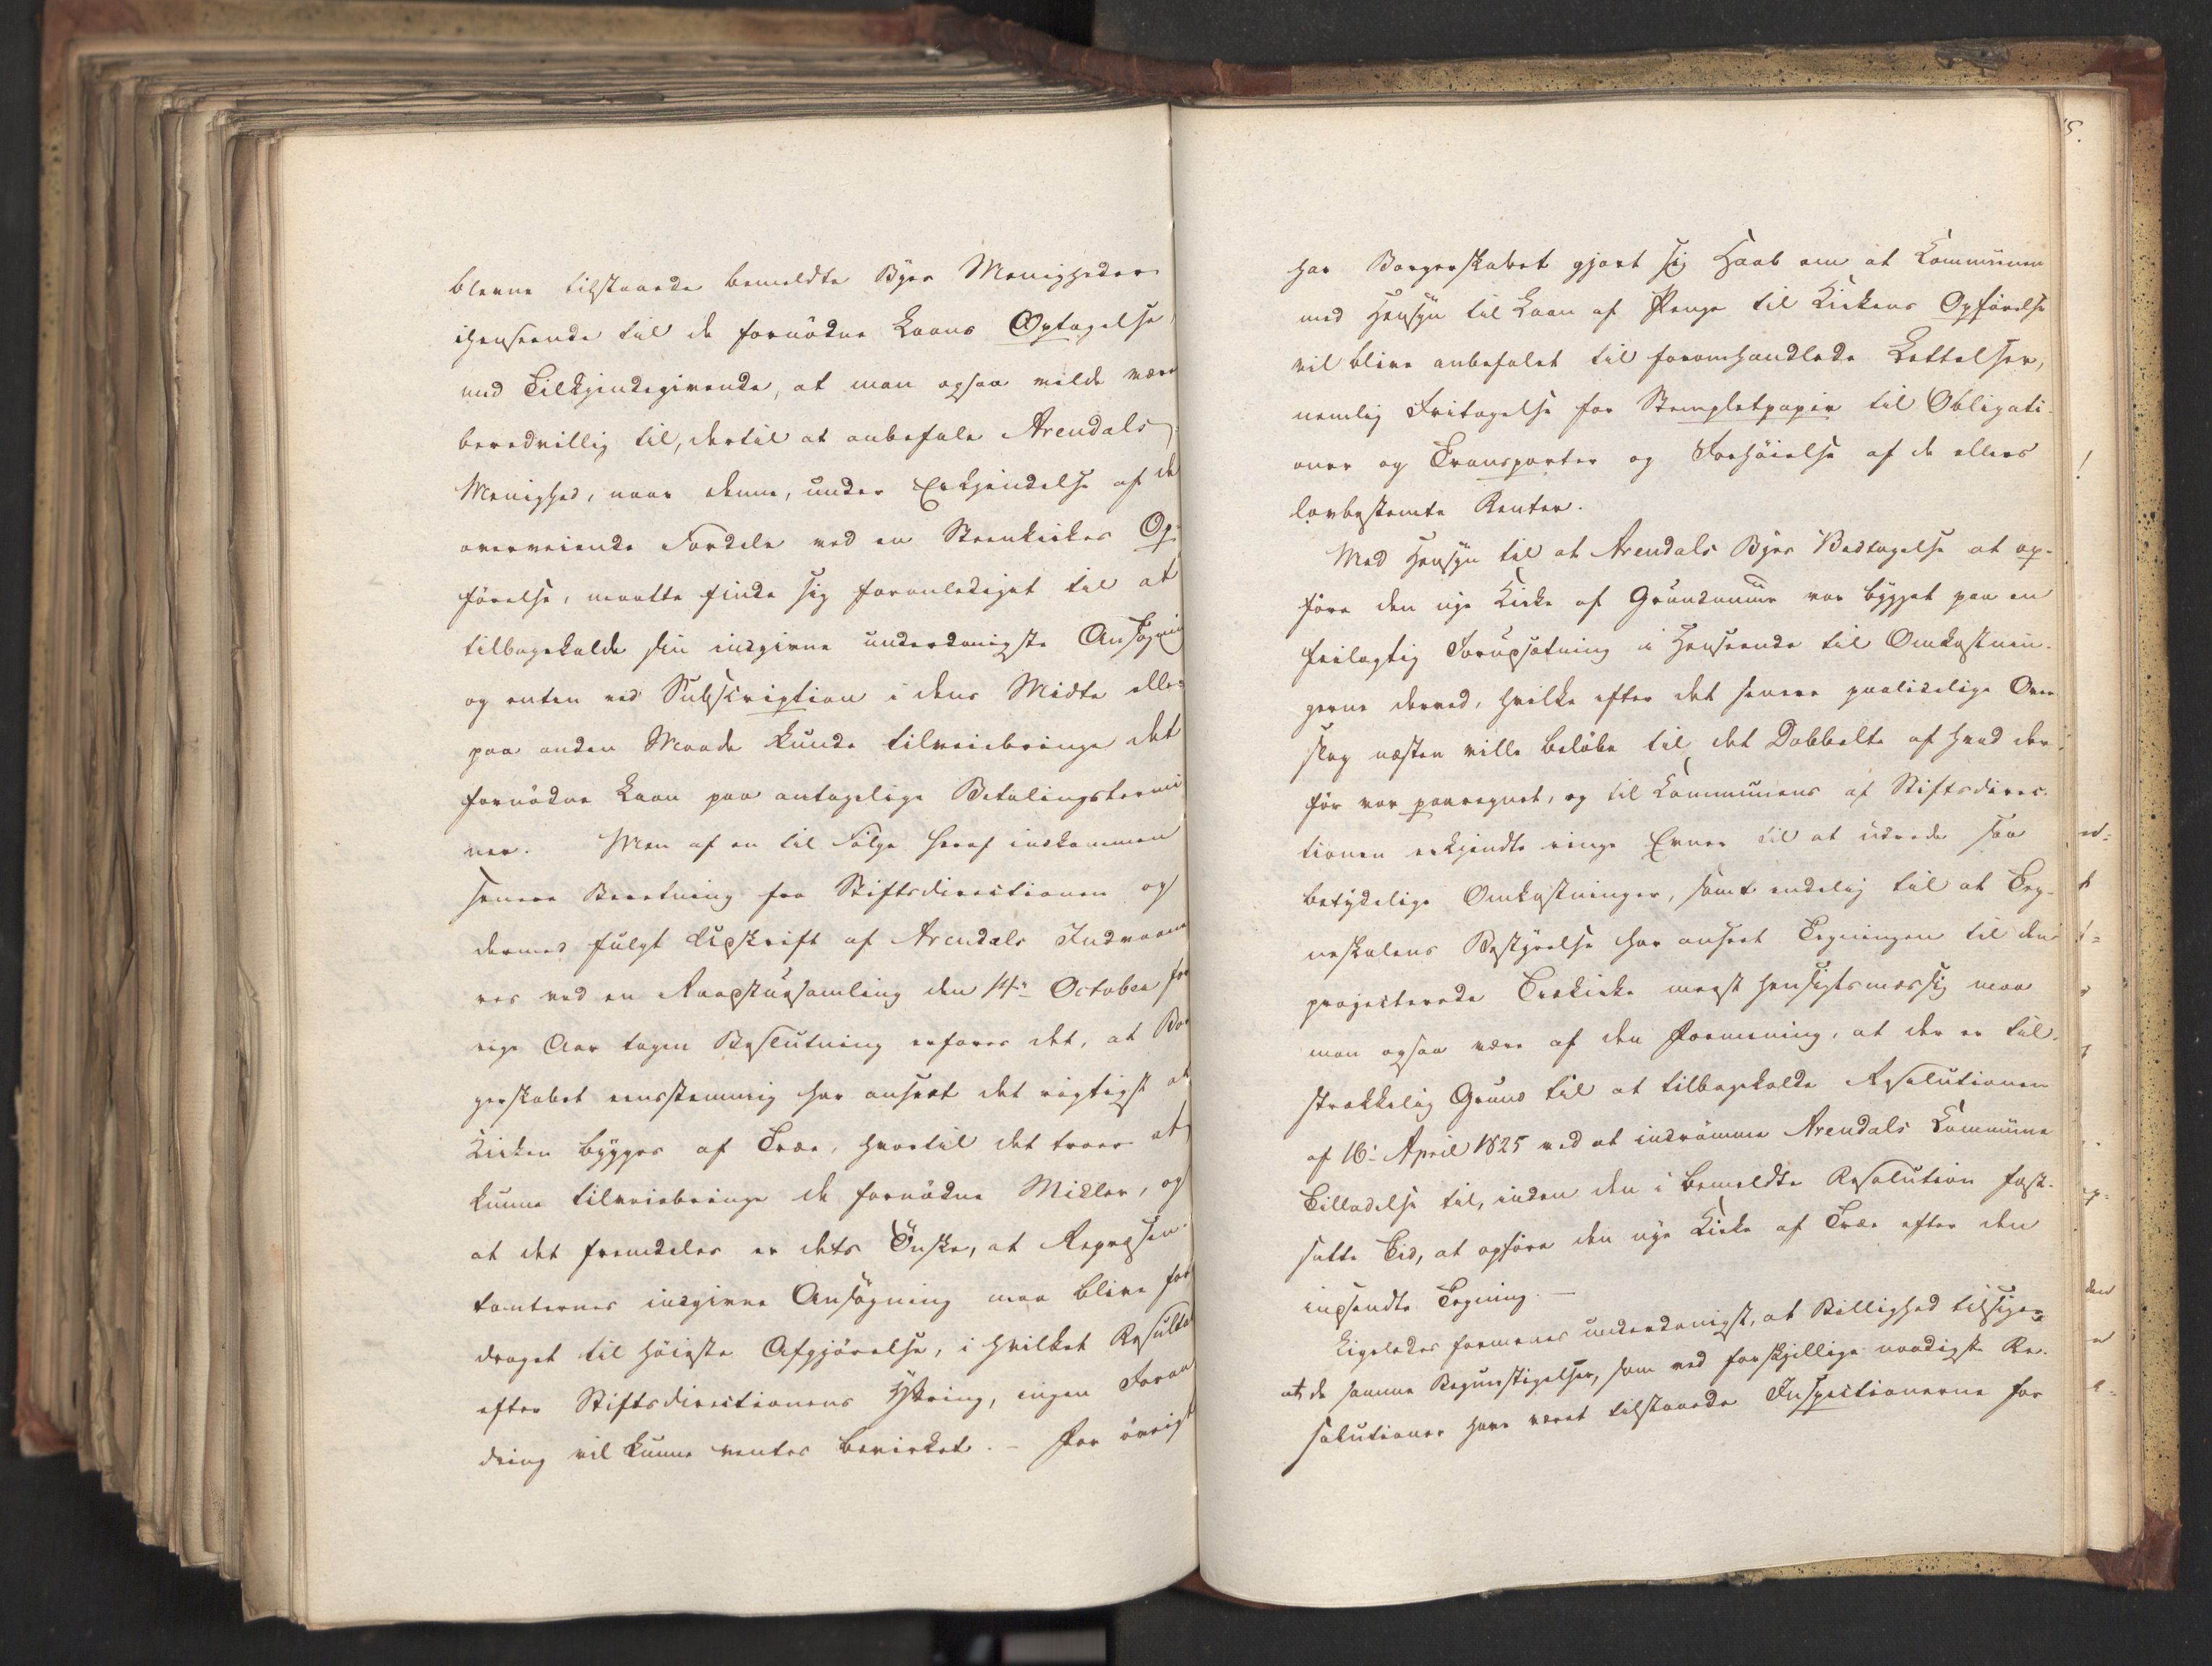 blevne tilstaaede bemeldte Byes Menigheder
ihenseende til de fornødne Laans Optagelse,
med Tilkjendegivende, at man ogsaa vilde være
beredvillig til, dertil at anbefale Arendals
Menighed, naar denne, under Erkjendelse af de
overveiende Fordele ved en Steenkirkes Op-
førelse, maatte finde sig foranlediget til at
tilbagekalde sin indgivne underdanigste Ansøgning
og enten ved Subscription i dens Midte eller
paa anden Maade kunde tilveiebringe det
fornødne Laan paa antagelige Betalingstermi
ner. Men af en til Følge heraf indkommen
senere Beretning fra Stiftsdirectionen og
dermed fulgt Udskrift af Arendals Indvaane
res ved en Raadstuesamling den 14de October for
rige Aar tagen Beslutning erfares det, at Bor
gerskabet eensstemmig har anseet det rigtigst at
Kirken bygges af Træe, hvortil det troer at
kunne tilveiebringe de fornødne Midler, og
at det fremdeles er dets Ønske, at Repræsen-
tanternes indgivne Ansøgning maa blive fore
draget til høieste Afgjørelse, i hvilket Resultat
efter Stiftsdirectionens Yttring, ingen Foran
dring vil kunne ventes bevirket. – For øvrigt
har Borgerskabet gjort sig Haab om at Kommunen
med Hensyn til Laan af Penge til Kirkens Opførelse
vil blive anbefalet til foromhandlede Lettelser,
nemlig Fritagelse for Stempletpapir til Obligati-
oner og Transporter og Forhøielse af de ellers
lovbestemte Renter.
Med Hensyn til at Arendals Byes Vedtagelse at op-
føre den nye Kirke af Grundmuur var bygget paa en
feilagtig Forudsætning i Henseende til Omkostnin-
gerne derved, hvilke efter det senere paalidelige Over
slag næsten ville beløbe til det Dobbelte af hvad der
før var paaregnet, og til Kommunens af Stiftsdirec-
tionen erkjendte ringe Evner til at udrede saa
betydelige Omkostninger, samt endelig til at Teg-
neskolens Bestyrelse har anseet Tegningen til den
projecterede Trækirke meest hensigtsmæssig maa
man ogsaa være af den Formening, at der er til-
strækkelig Grund til at tilbagekalde Resolutionen
af 16de April 1825 ved at indrømme Arendals Kommune
Tilladelse til, inden den i bemeldte Resolution fast-
satte Tid, at opføre den nye Kirke af Træe efter den
indsendte Tegning. –
Ligeledes formenes underdanigst, at Billighed tilsiger
at de samme Begunstigelser, som ved forskjellige naadigste Re-
solutioner have været tilstaaede Inspectionerne for